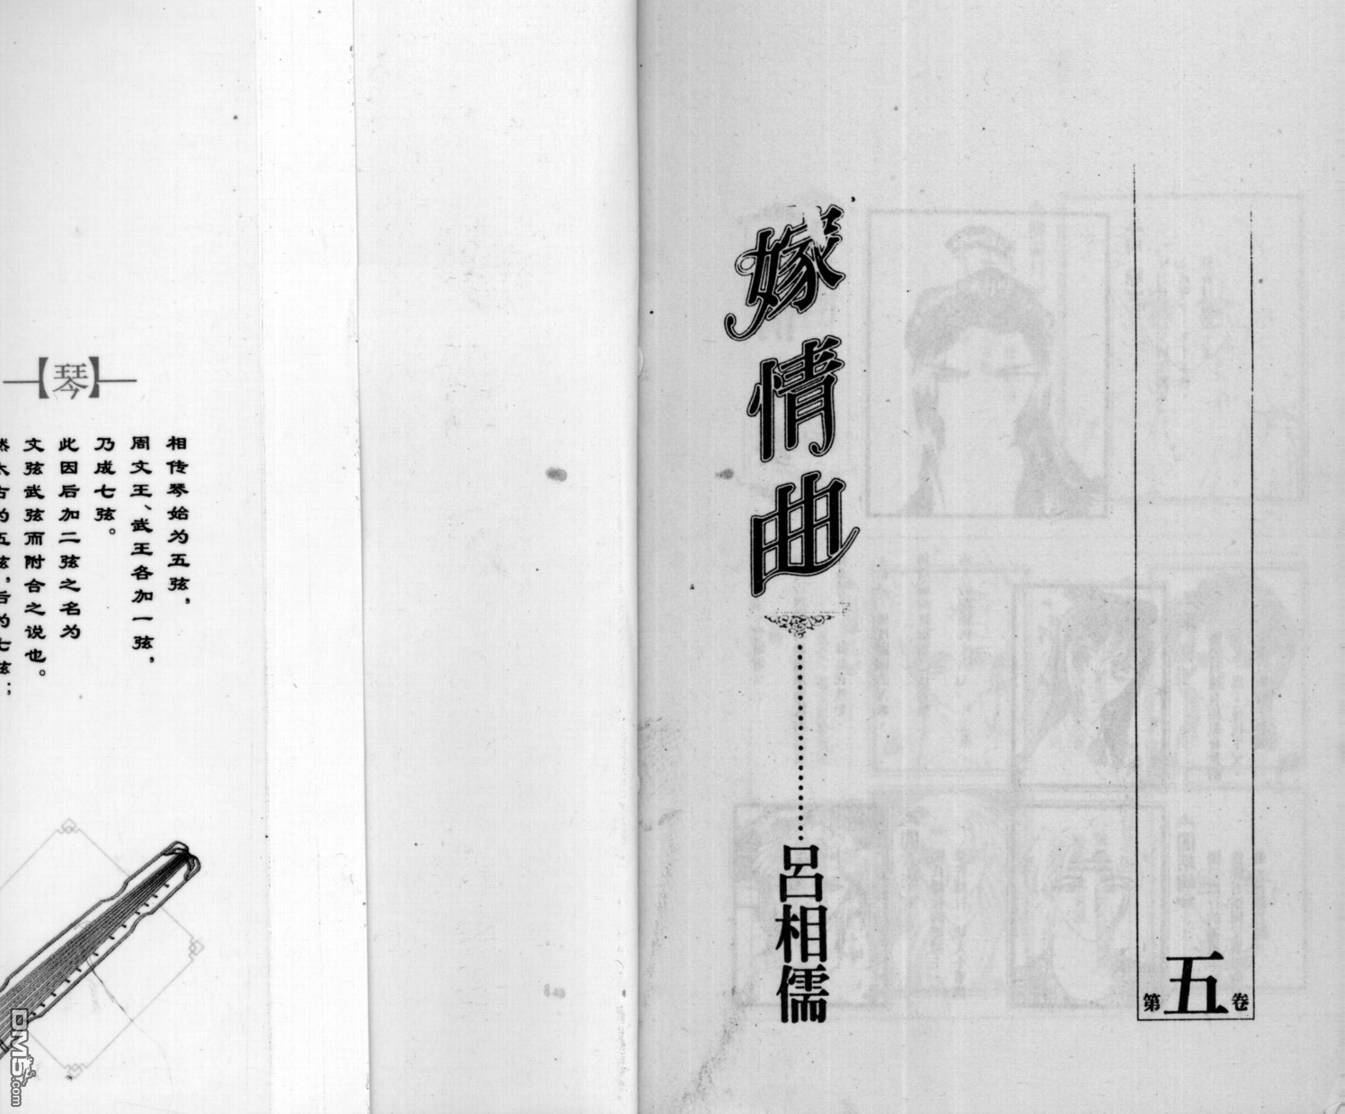 嫁情曲
呂相儒
第五卷
【琴】
相传琴始为五弦，
周文王、武王各加一弦，
乃成七弦。
此因后加二弦之名为
文弦武弦而附合之说也。
DM5.com